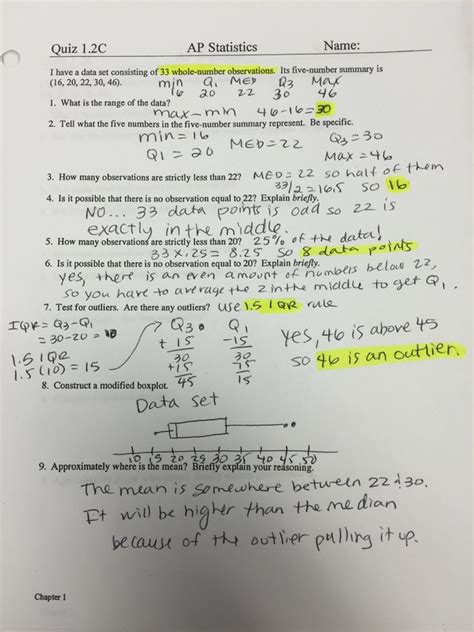 Quiz 1.2C AP Statistics Name:
I have a data set consisting of 33 whole-number observations. Its five-number summary is
(16, 20, 22, 30, 46). min Q1 MED Q3 Max
16 20 22 30 46
1. What is the range of the data?
max-min 46-16=30
2. Tell what the five numbers in the five-number summary represent. Be specific.
min = 16 MED=22 Q3=30
Q1 = 20 Max=46
3. How many observations are strictly less than 22? MED=22 so half of them
33/2=16.5 so 16
4. Is it possible that there is no observation equal to 22? Explain briefly.
NO... 33 data points is odd so 22 is
exactly in the middle.
5. How many observations are strictly less than 20? 25% of the data!
33 x .25 = 8.25 so 8 data points
6. Is it possible that there is no observation equal to 20? Explain briefly.
yes, there is an even amount of numbers below 22,
so you have to average the 2 in the middle to get Q1.
7. Test for outliers. Are there any outliers? use 1.5 IQR rule
IQR = Q3-Q1
= 30-20 = 10
1.5 IQR
1.5 (10) = 15
Q3 Q1
+ 15 -15
30 30
+15 15
45 15
yes, 46 is above 45
so 46 is an outlier.
8. Construct a modified boxplot.
Data set
10 15 20 25 30 35 40 45 50
9. Approximately where is the mean? Briefly explain your reasoning.
The mean is somewhere between 22 & 30.
It will be higher than the median
because of the outlier pulling it up.
Chapter 1